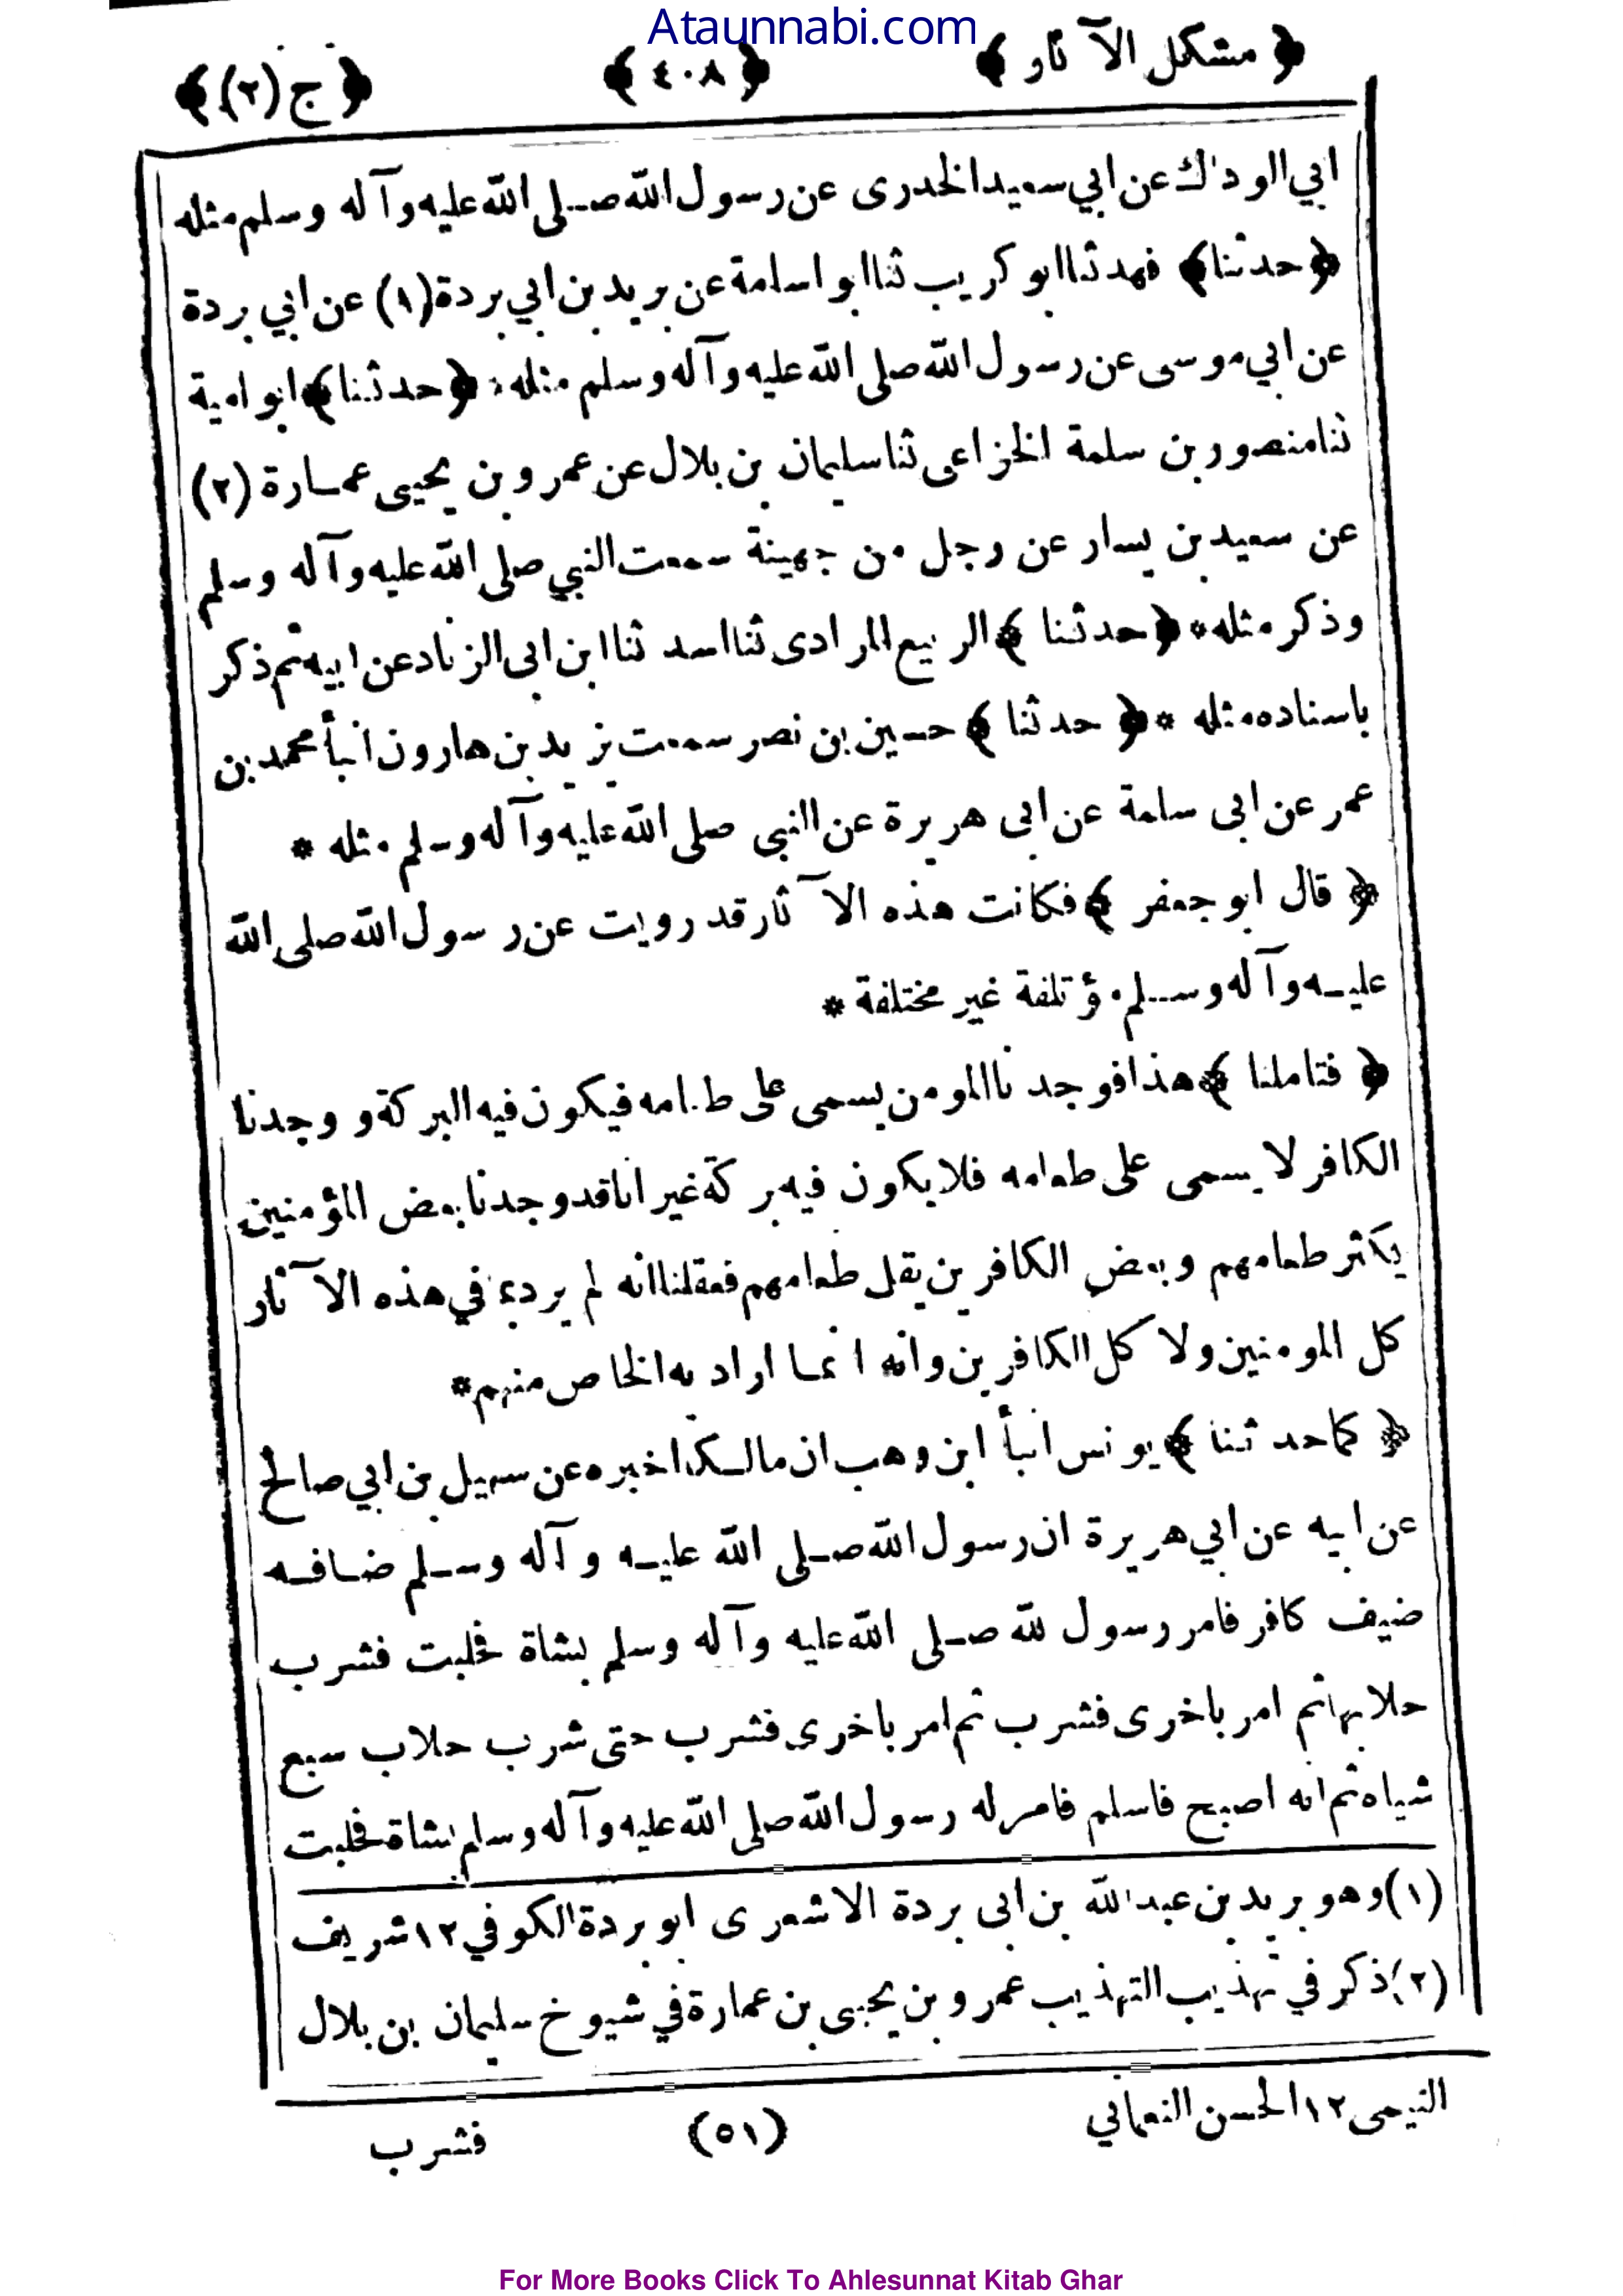 Ataunnabi.com
﴿ مشكل الآثار ﴾ ﴿ ٤٠٨ ﴾ ﴿ ج (٢) ﴾
ابي الوداك عن ابي سعيد الخدرى عن رسول الله صلى الله عليه وآله وسلم مثله
﴿حدثنا﴾ فهد ثنا ابو كريب ثنا ابو اسامة عن بريد بن ابي بردة (١) عن ابي بردة
عن ابي موسى عن رسول الله صلى الله عليه وآله وسلم مثله * ﴿حدثنا﴾ ابو امية
ثنا منصور بن سلمة الخزاعى ثنا سليمان بن بلال عن عمرو بن يحيى عمارة (٢)
عن سعيد بن يسار عن رجل من جهينة سمعت النبي صلى الله عليه وآله وسلم
وذكر مثله * ﴿حدثنا﴾ الربيع المرادى ثنا اسد ثنا ابن ابى الزناد عن ابيه ثم ذكر
باسناده مثله * ﴿حدثنا﴾ حسين بن نصر سمعت يزيد بن هارون انبأ محمد بن
عمر عن ابى سلمة عن ابى هريرة عن النبى صلى الله عليه وآله وسلم مثله *
﴿قال ابو جعفر﴾ فكانت هذه الآثار قد رويت عن رسول الله صلى الله
عليه وآله وسلم مؤتلفة غير مختلفة *
﴿فتاملنا﴾ هذا فوجدنا المومن يسمى على طعامه فيكون فيه البركة و وجدنا
الكافر لا يسمى على طعامه فلا يكون فيه بركة غير انا قد وجدنا بعض المؤمنين
يكثر طعامهم وبعض الكافرين يقل طعامهم فعقلنا انه لم يرد في هذه الآثار
كل المومنين ولا كل الكافرين وانه انما اراد به الخاص منهم *
﴿كما حدثنا﴾ يونس انبأ ابن وهب ان مالكا اخبره عن سهيل بن ابي صالح
عن ابيه عن ابي هريرة ان رسول الله صلى الله عليه وآله وسلم ضافه
ضيف كافر فامر رسول لله صلى الله عليه وآله وسلم بشاة فحلبت فشرب
حلابها ثم امر باخرى فشرب ثم امر باخرى فشرب حتى شرب حلاب سبع
شياه ثم انه اصبح فاسلم فامر له رسول الله صلى الله عليه وآله وسلم بشاة فحلبت
(١) وهو بريد بن عبد الله بن ابى بردة الاشعرى ابو بردة الكوفي ١٢ شريف
(٢) ذكر في تهذيب التهذيب عمرو بن يحيى بن عمارة في شيوخ سليمان بن بلال
التيمى ١٢ الحسن النعماني (٥١) فشرب
For More Books Click To Ahlesunnat Kitab Ghar